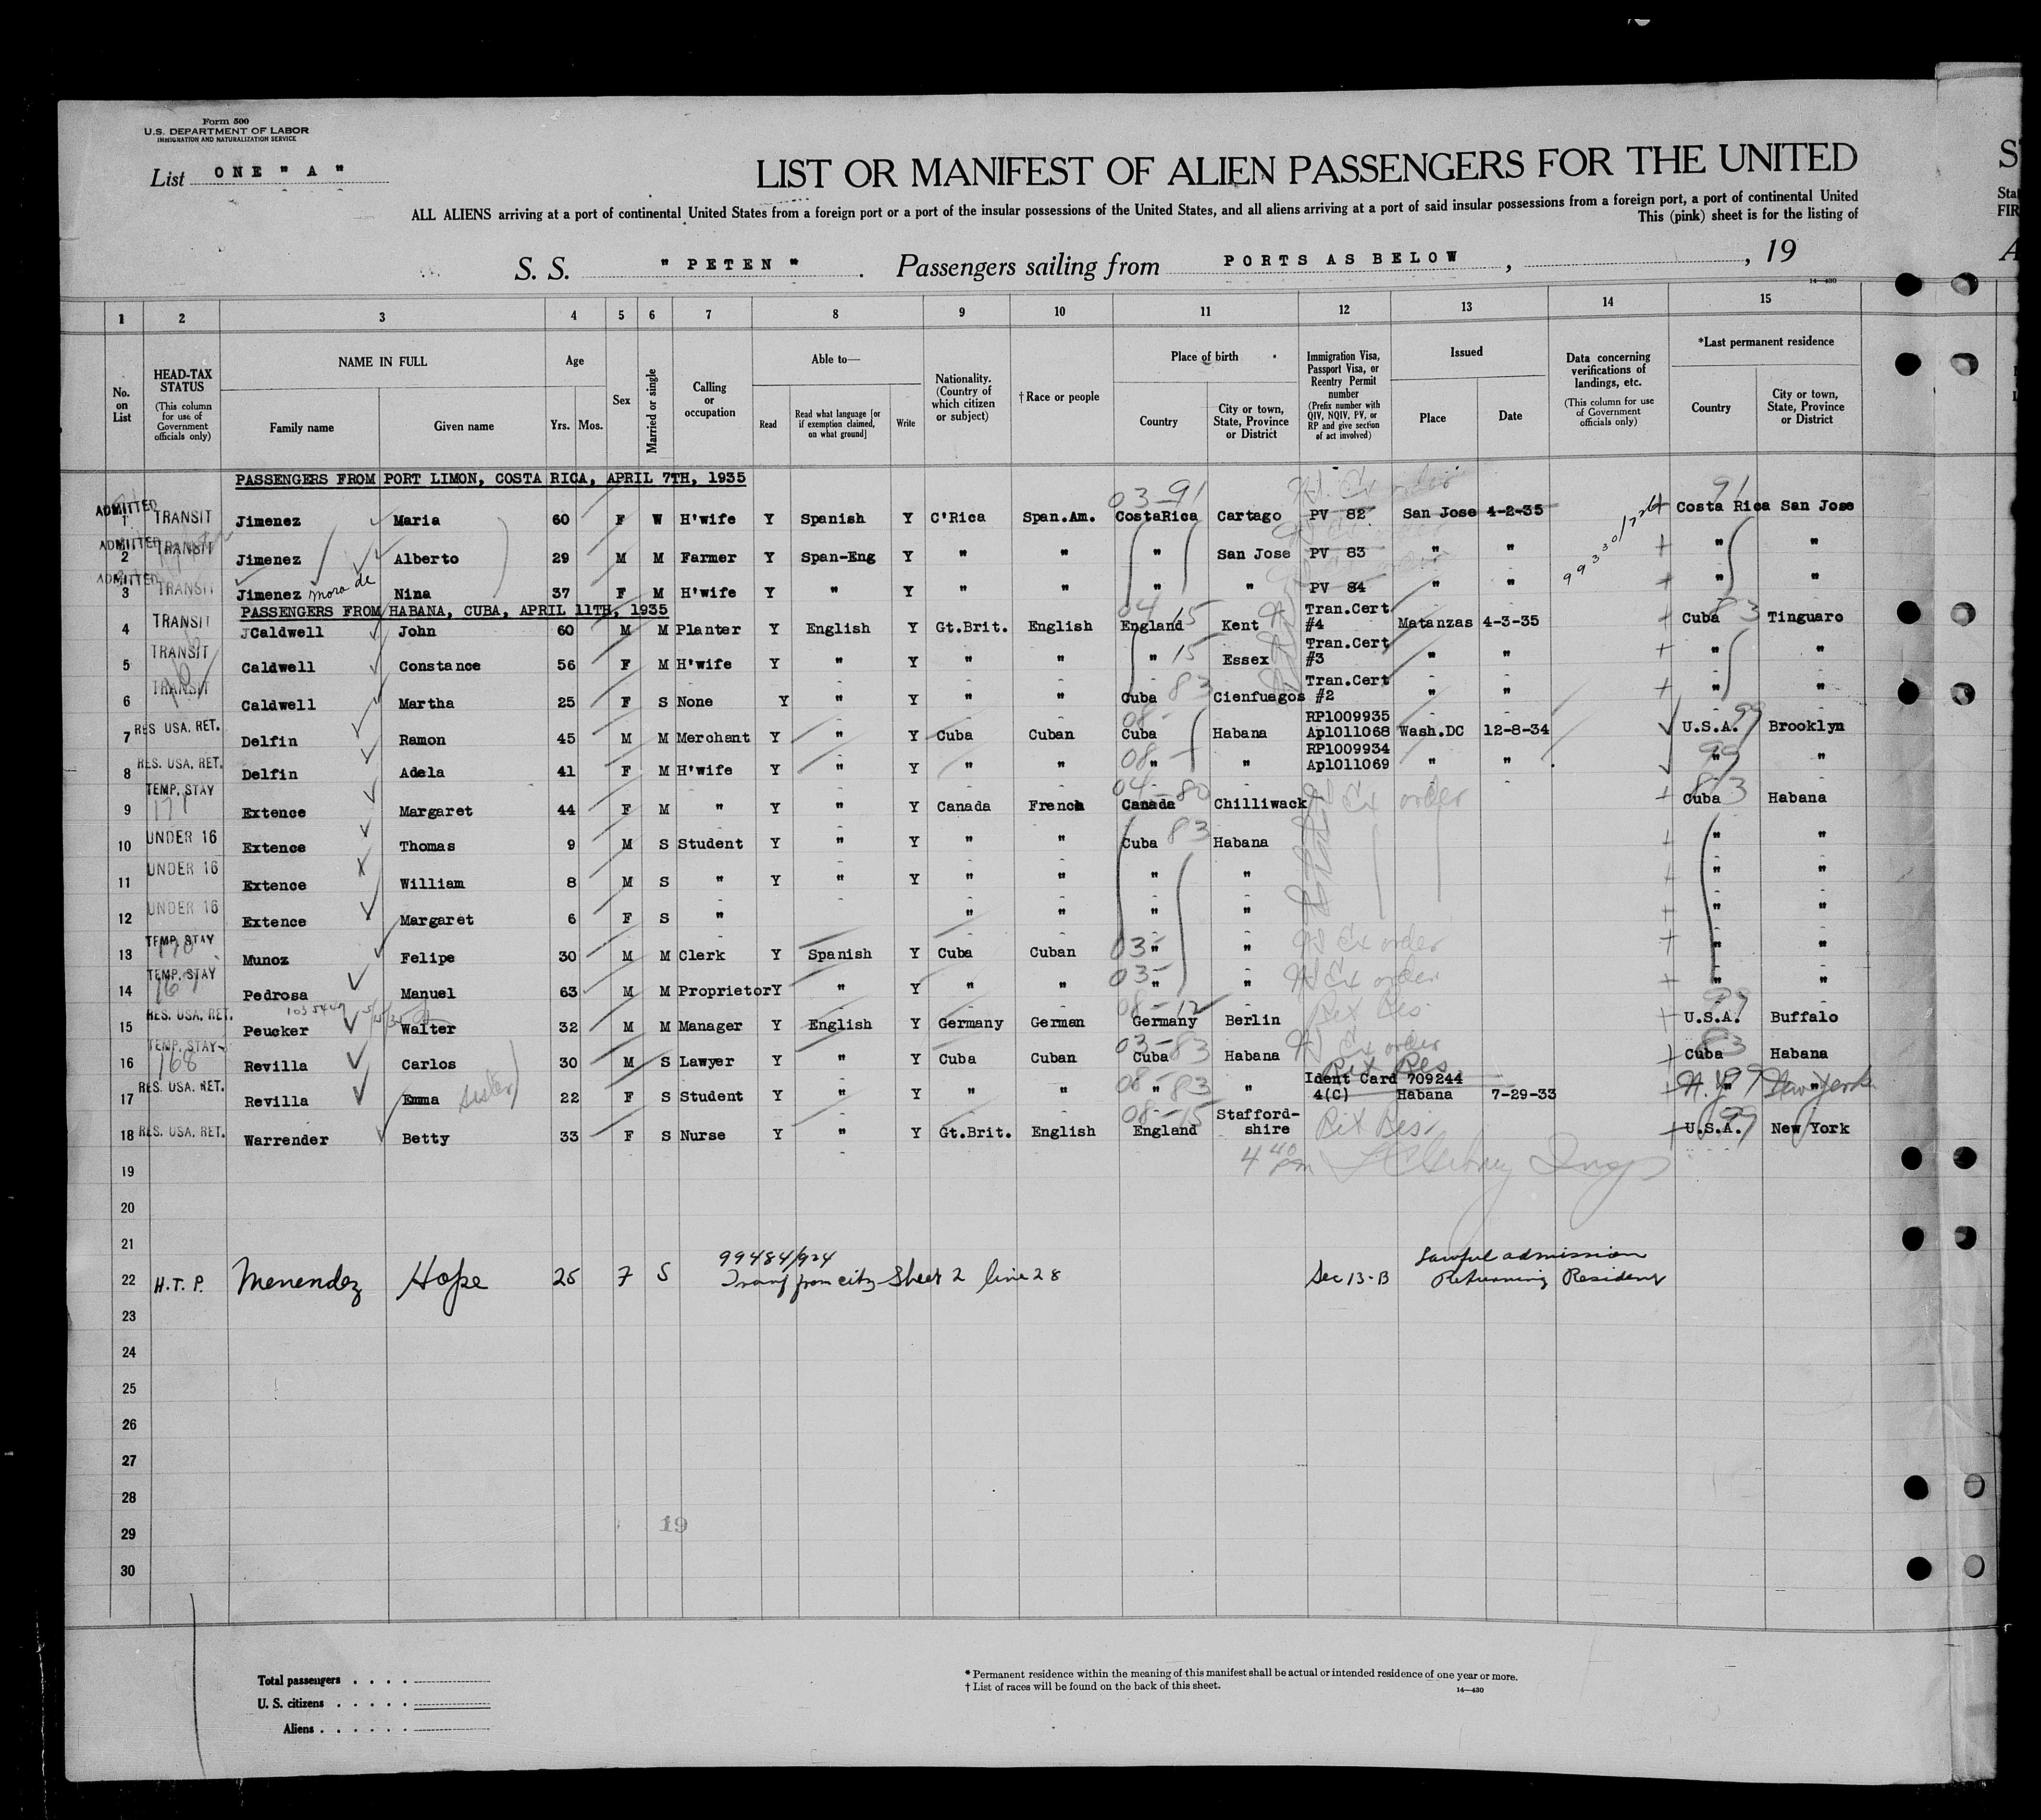 Form 500
U.S. DEPARTMENT OF LABOR
IMMIGRATION AND NATURALIZATION SERVICE
List ONE " A "
LIST OR MANIFEST OF ALIEN PASSENGERS FOR THE UNITED
ALL ALIENS arriving at a port of continental United States from a foreign port or a port of the insular possessions of the United States, and all aliens arriving at a port of said insular possessions from a foreign port, a port of continental United
This (pink) sheet is for the listing of
S. S. " PETEN " . Passengers sailing from PORTS AS BELOW , , 19
14—430
1 2 3 4 5 6 7 8 9 10 11 12 13 14 15
No. on List
HEAD-TAX STATUS
(This column for use of Government officials only)
NAME IN FULL
Family name Given name
Age
Yrs. Mos.
Sex
Married or single
Calling or occupation
Able to—
Read Read what language [or if exemption claimed, on what ground] Write
Nationality. (Country of which citizen or subject)
† Race or people
Place of birth
Country City or town, State, Province or District
Immigration Visa, Passport Visa, or Reentry Permit number
(Prefix number with QIV, NQIV, PV, or RP and give section of act involved)
Issued
Place Date
Data concerning verifications of landings, etc.
(This column for use of Government officials only)
*Last permanent residence
Country City or town, State, Province or District
PASSENGERS FROM PORT LIMON, COSTA RICA, APRIL 7TH, 1935
03-91 91
ADMITTED 1 TRANSIT Jimenez Maria 60 F W H'wife Y Spanish Y C'Rica Span.Am. CostaRica Cartago PV 82 San Jose 4-2-35 Costa Rica San Jose
ADMITTED 2 TRANSIT Jimenez Alberto 29 M M Farmer Y Span-Eng Y " " " San Jose PV 83 " " " "
ADMITTED 3 TRANSIT Jimenez Mora de Nina 37 F M H'wife Y " Y " " " " PV 84 " " " "
PASSENGERS FROM HABANA, CUBA, APRIL 11TH, 1935
4 TRANSIT Caldwell John 60 M M Planter Y English Y Gt.Brit. English England Kent Tran.Cert #4 Matanzas 4-3-35 Cuba 83 Tinguaro
5 TRANSIT Caldwell Constance 56 F M H'wife Y " Y " " " 15 Essex Tran.Cert #3 " " " "
6 TRANSIT Caldwell Martha 25 F S None Y " Y " " Cuba 83 Cienfuegos Tran.Cert #2 " " " "
7 RES USA. RET. Delfin Ramon 45 M M Merchant Y " Y Cuba Cuban 08- Cuba Habana RP1009935 Ap1011068 Wash.DC 12-8-34 U.S.A. 99 Brooklyn
8 RES. USA, RET. Delfin Adela 41 F M H'wife Y " Y " " 08- " " RP1009934 Ap1011069 " " 99 " "
9 TEMP. STAY 171 Extence Margaret 44 F M " Y " Y Canada French 04-80 Canada Chilliwack Ex order Cuba 83 Habana
10 UNDER 16 Extence Thomas 9 M S Student Y " Y " " Cuba 83 Habana " "
11 UNDER 16 Extence William 8 M S " Y " Y " " " " " "
12 UNDER 16 Extence Margaret 6 F S " " " " " " "
13 TEMP. STAY Munoz Felipe 30 M M Clerk Y Spanish Y Cuba Cuban 03- " " Ex order " "
14 TEMP. STAY Pedrosa Manuel 63 M M Proprietor Y " Y " " 03- " " Ex order " "
15 RES. USA, RET. Peucker Walter 32 M M Manager Y English Y Germany German 08-12 Germany Berlin U.S.A. 99 Buffalo
16 TEMP. STAY 168 Revilla Carlos 30 M S Lawyer Y " Y Cuba Cuban 03-83 Cuba Habana Ex order Cuba 83 Habana
17 RES. USA, RET. Revilla Emma sister 22 F S Student Y " Y " " 08-83 " " Ident Card 709244 4(C) Habana 7-29-33 N.Y. 99 " New York
18 RES. USA, RET. Warrender Betty 33 F S Nurse Y " Y Gt.Brit. English 08-15 England Stafford-shire U.S.A. 99 New York
19 4 40 pm
20
21 99484/924 Lawful admission
22 H.T.P. Menendez Hope 25 F S Transf from city Sheet 2 line 28 Sec 13-B Returning Resident
23
24
25
26
27
28
29 19
30
Total passengers . . . .
U. S. citizens . . . . .
Aliens . . . . . .
* Permanent residence within the meaning of this manifest shall be actual or intended residence of one year or more.
† List of races will be found on the back of this sheet.
14—430